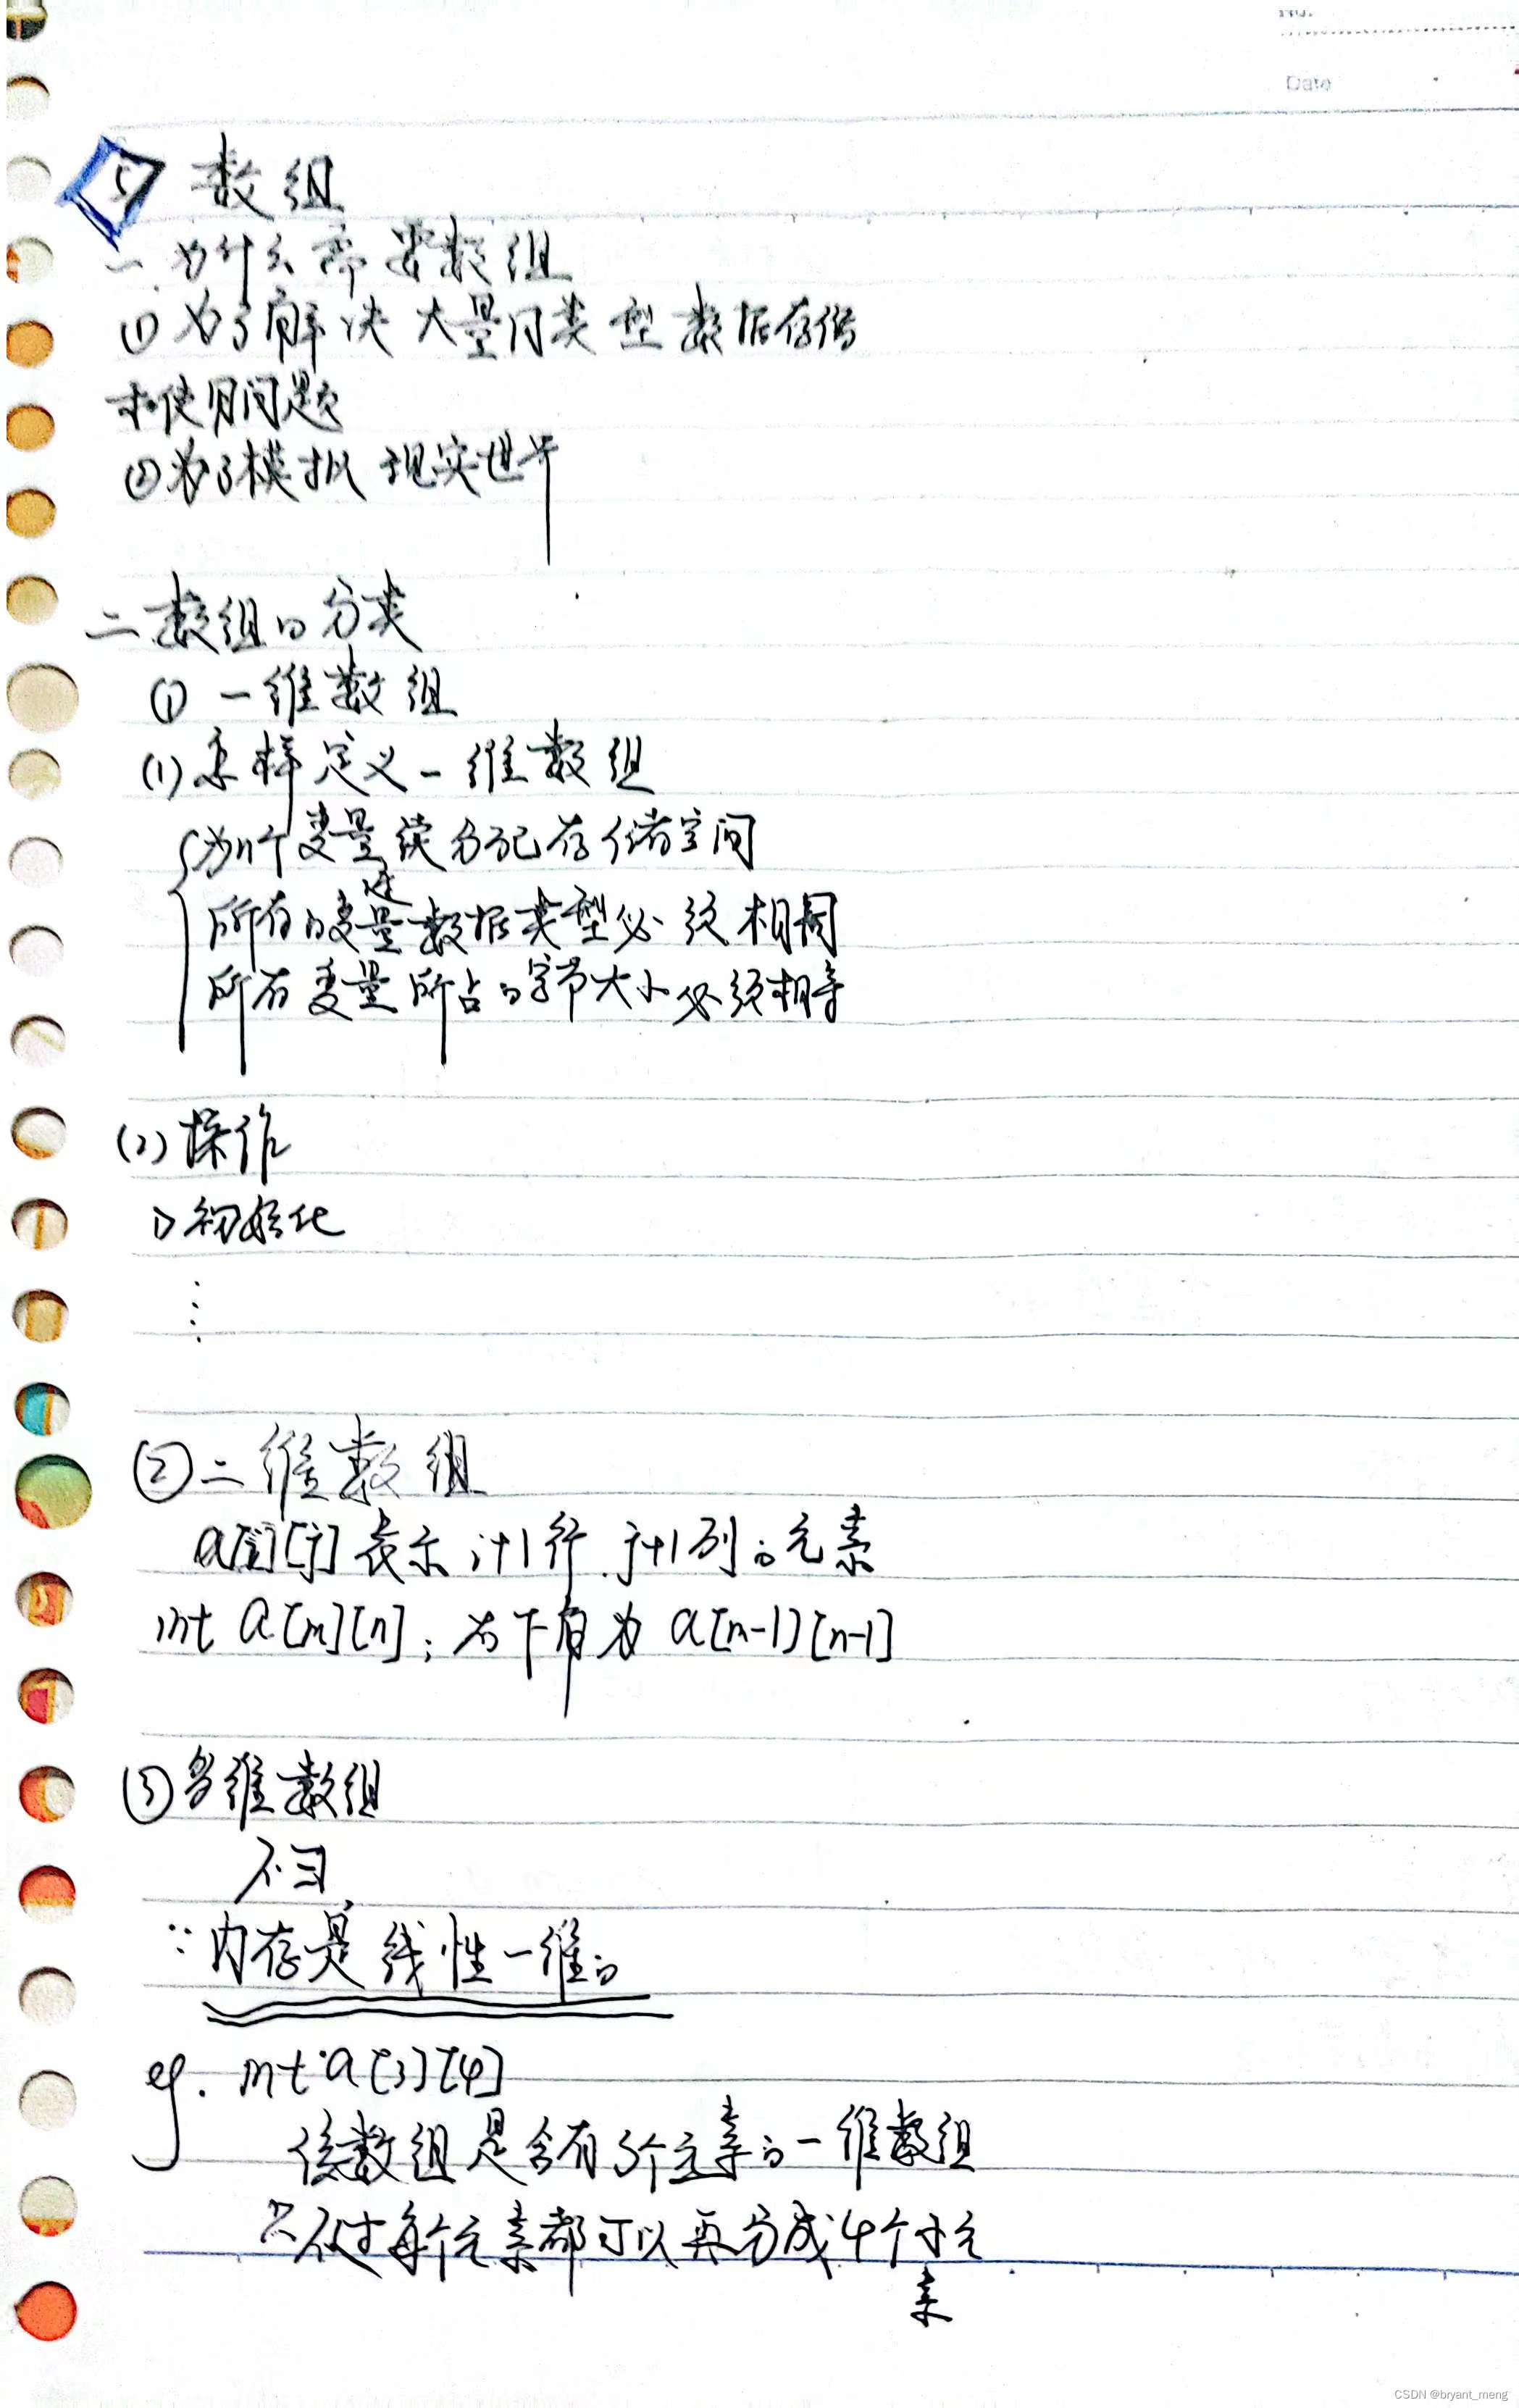 No.
Date
5 数组
一.为什么需要数组
① 为了解决大量同类型数据存储
和使用问题
②为了模拟现实世界
二 数组的分类
① 一维数组
(1) 怎样定义一维数组
为n个变量连续分配存储空间
所有的变量数据类型必须相同
所有变量所占的字节大小必须相等
(2) 操作
1> 初始化
⋮
② 二维数组
a[i][j] 表示 i+1行 j+1列的元素
int a[m][n]; 右下角为 a[m-1][n-1]
③ 多维数组
不�
∵内存是线性一维的
eg. int a[3][4]
该数组是含有3个元素的一维数组
只不过每个元素都可以再分成4个小元
素
CSDN @bryant_meng